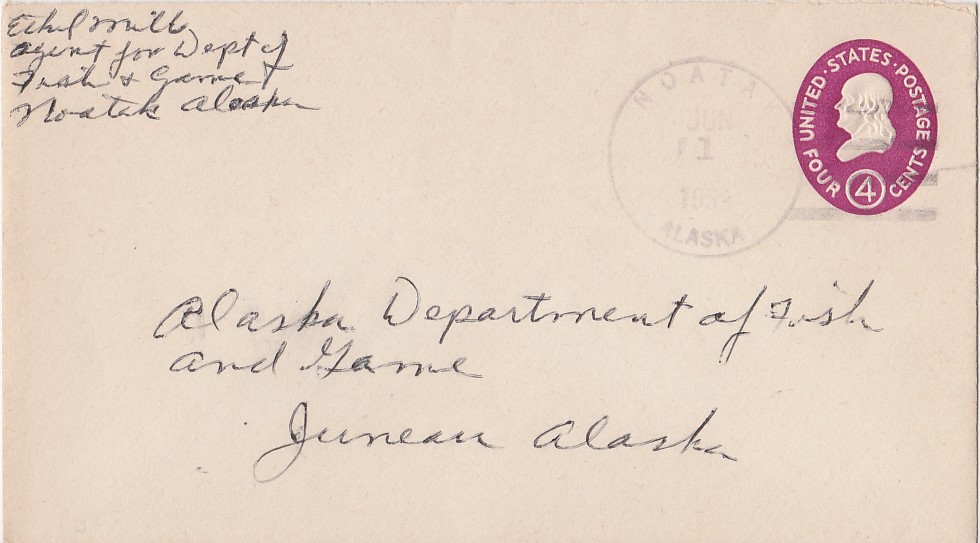 Ethel Mills
Agent for Dept of
Fish & Game
Noatak Alaska
NOATAK
JUN
1
ALASKA
UNITED·STATES·POSTAGE
FOUR 4 CENTS
Alaska Department of Fish
and Game
Juneau Alaska